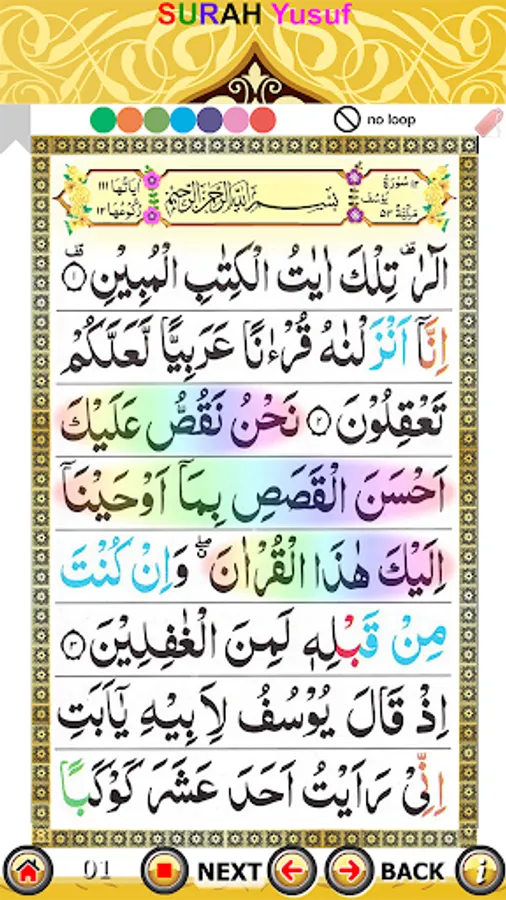 SURAH Yusuf
no loop
اٰيَاتُهَا ١١١
رُكُوْعُهَا ١٢
بِسْمِ اللّٰهِ الرَّحْمٰنِ الرَّحِيْمِ
١٢ سُوْرَةُ
يُوْسُفَ
مَكِّيَّةٌ ٥٣
الٓرٰ ۚ قف تِلْكَ اٰيٰتُ الْكِتٰبِ الْمُبِيْنِ قف ١
اِنَّاۤ اَنْزَلْنٰهُ قُرْءٰنًا عَرَبِيًّا لَّعَلَّكُمْ
تَعْقِلُوْنَ ٢ نَحْنُ نَقُصُّ عَلَيْكَ
اَحْسَنَ الْقَصَصِ بِمَاۤ اَوْحَيْنَاۤ
اِلَيْكَ هٰذَا الْقُرْاٰنَ ۖ وَاِنْ كُنْتَ
مِنْ قَبْلِهٖ لَمِنَ الْغٰفِلِيْنَ ٣
اِذْ قَالَ يُوْسُفُ لِاَبِيْهِ يٰۤاَبَتِ
اِنِّيْ رَاَيْتُ اَحَدَ عَشَرَ كَوْكَبًا
01 NEXT BACK i